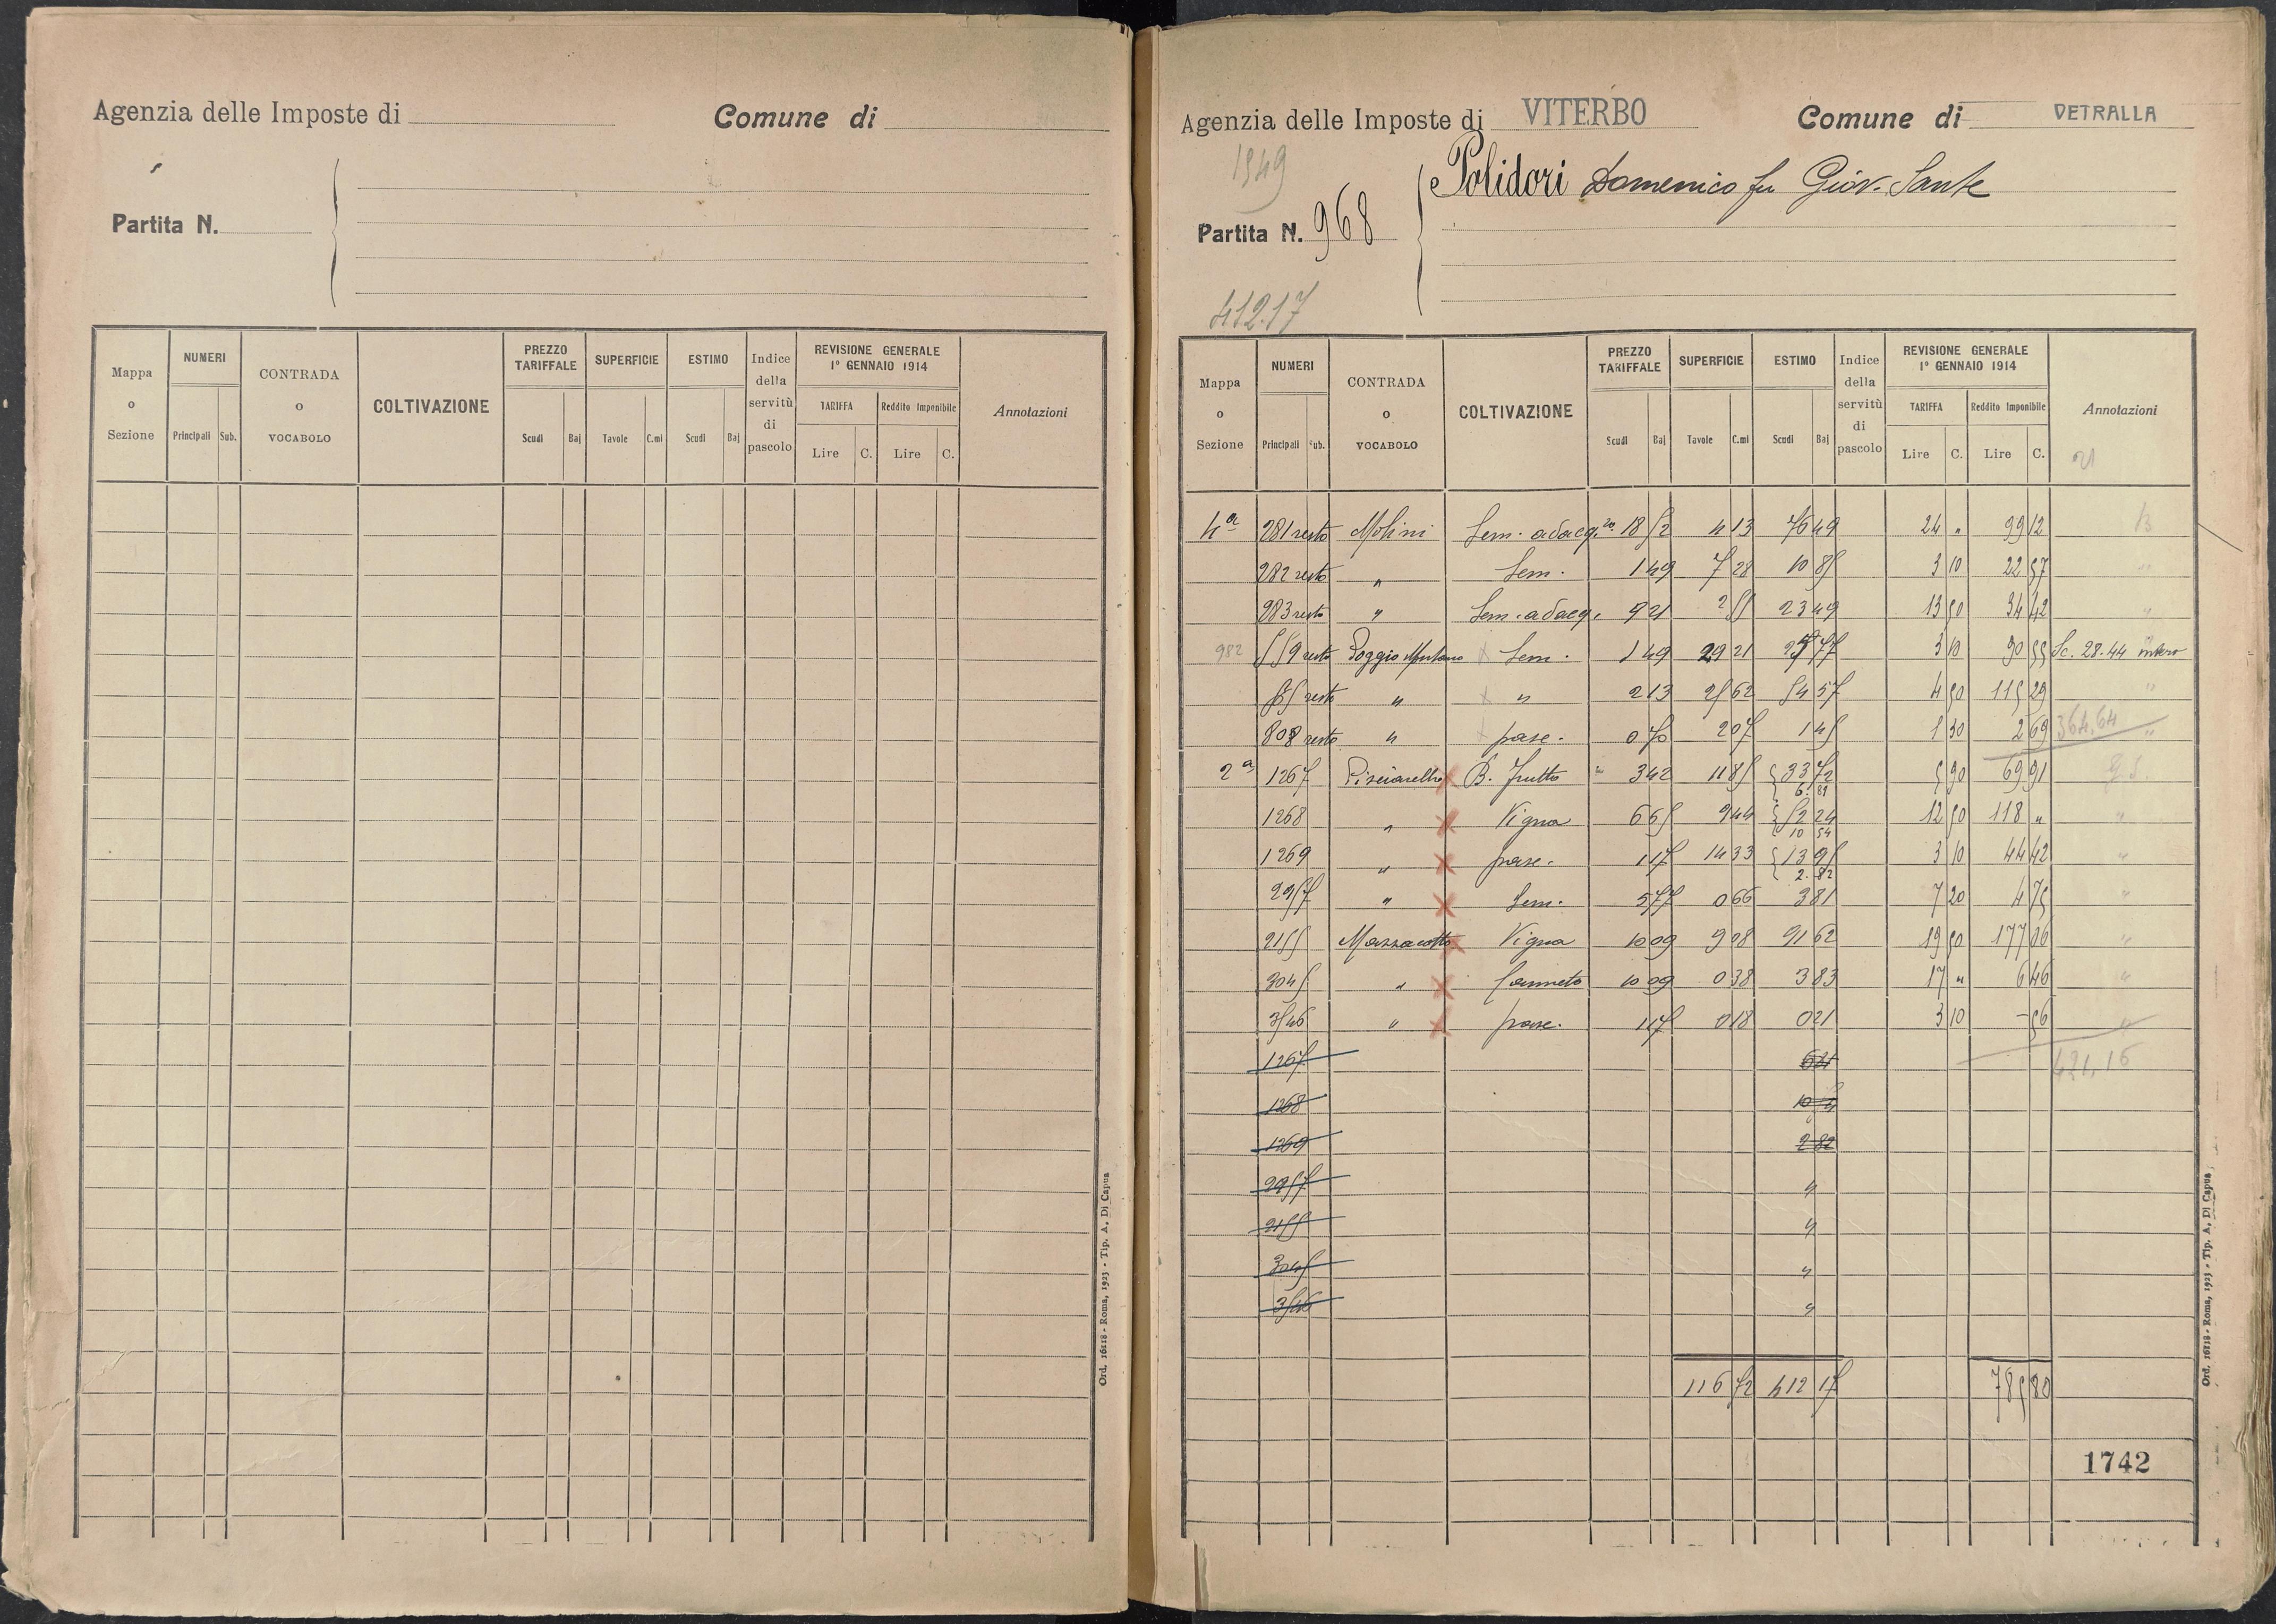 Agenzia delle Imposte di
Comune di
Partita N.
Mappa o Sezione
NUMERI
Principali Sub.
CONTRADA o VOCABOLO
COLTIVAZIONE
PREZZO TARIFFALE
Scudi Baj
SUPERFICIE
Tavole C.mi
ESTIMO
Scudi Baj
Indice della servitù di pascolo
REVISIONE GENERALE
1° GENNAIO 1914
TARIFFA
Lire C.
Reddito Imponibile
Lire C.
Annotazioni
Ord. 16118 - Roma, 1923 - Tip. A. Di Capua
Agenzia delle Imposte di VITERBO
Comune di VETRALLA
1549
Polidori Domenico fu Giov. Sante
Partita N. 968
412.17
Mappa o Sezione
NUMERI
Principali Sub.
CONTRADA o VOCABOLO
COLTIVAZIONE
PREZZO TARIFFALE
Scudi Baj
SUPERFICIE
Tavole C.mi
ESTIMO
Scudi Baj
Indice della servitù di pascolo
REVISIONE GENERALE
1° GENNAIO 1914
TARIFFA
Lire C.
Reddito Imponibile
Lire C.
Annotazioni
4a 281 resto Molini Sem. adacq. 18 52 4 13 76 49 24 " 99 12
282 resto " Sem. 1 49 7 28 10 85 3 10 22 57 "
283 resto " Sem. adacq. 9 21 2 55 23 49 13 50 34 42 "
982 559 resto Poggio Montano Sem. 1 49 29 21 77 3 10 90 55 Sc. 28.44 intero
resto " " 2 13 25 62 54 57 4 50 115 29 "
808 resto " pasc. 0 70 2 07 1 45 1 30 2 69 364,64 "
2a 1267 Pisciarello B. frutto 3 42 11 85 33 72 5 90 69 91
6.81
1268 " Vigna 6 65 9 44 52 24 12 50 118 " "
10 54
1269 " pasc. 1 17 14 33 13 95 3 10 44 42 "
2.82
2957 " Sem. 5 77 0 66 3 81 7 20 4 75 "
2155 Mazzacotto Vigna 10 09 9 08 91 62 19 50 177 06 "
3045 " Canneto 10 09 0 38 3 83 17 " 6 46 "
3546 " pasc. 1 17 0 18 0 21 3 10 - 56 "
1267
421,16
1268
1269 2 82
2957 "
2155 "
3045 "
3546 "
116 72 412 17 785 80
1742
Ord. 16118 - Roma, 1923 - Tip. A. Di Capua